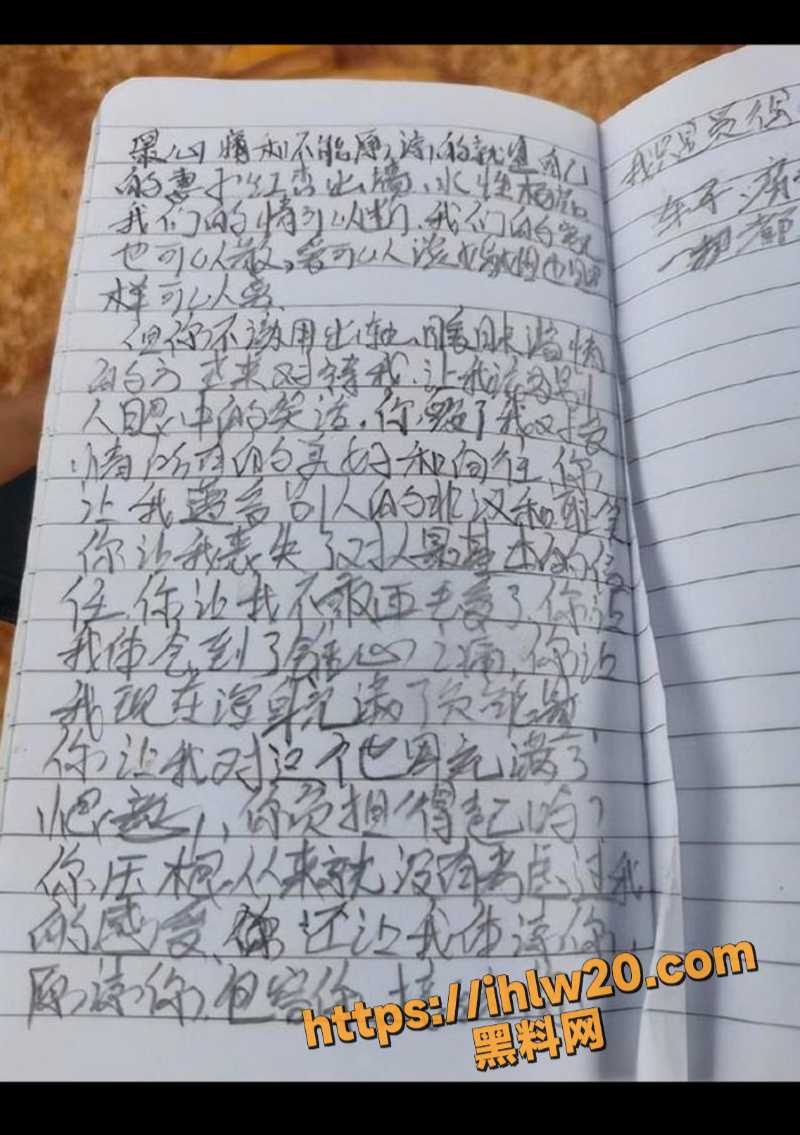 最心痛和不能原谅的就是自己
的妻子红杏出墙、水性杨花
我们的情可以断、我们的家
也可以散。爱可以人淡
样可以人
但你不该用出轨、暧昧滥情
的方式来对待我、让我活成别
人眼中的笑话。你毁了我对爱
情所有的美好和向往、你
让我遭受别人的非议和
你让我丧失了对人最基本的信
任、你让我不敢再去爱了、你让
我体会到了锥心之痛、你让
我现在浑身充满了负能量、
你让我对这个世界充满了
你负担得起吗？
你压根从来就没有考虑过我
的感受、你还让我体谅你、
原谅你、包容你、接
我只是
车子、
一切都
https://ihlw20.com
黑料网